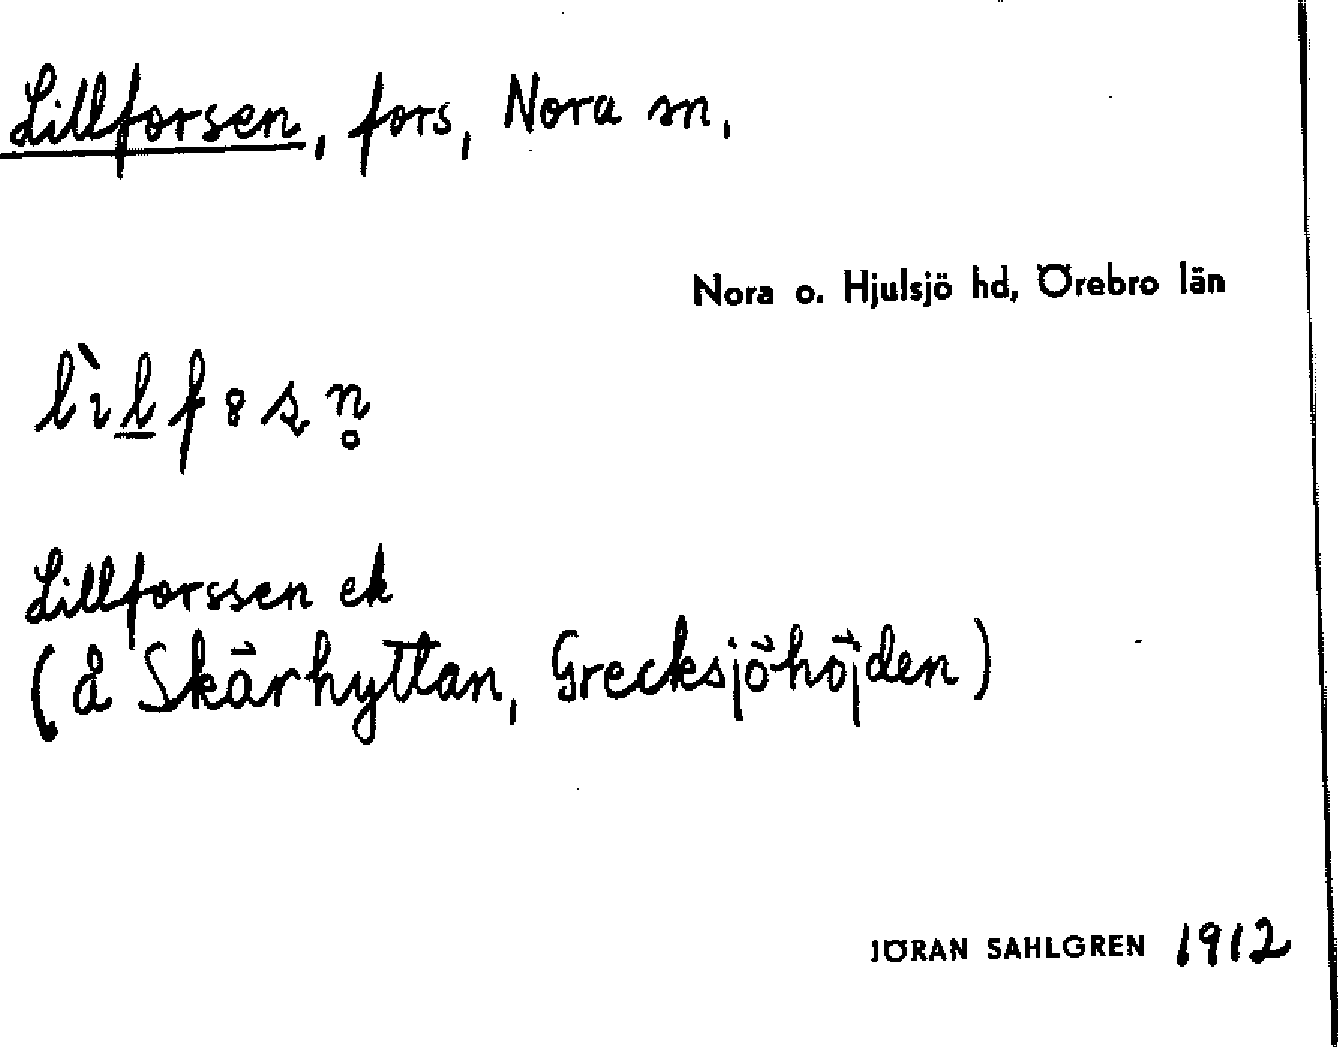 Lillforsen, fors, Nora sn,
Nora o. Hjulsjö hd, Örebro län
Lillforssen ek
(å Skärhyttan, Grecksjöhöjden)
JÖRAN SAHLGREN 1912